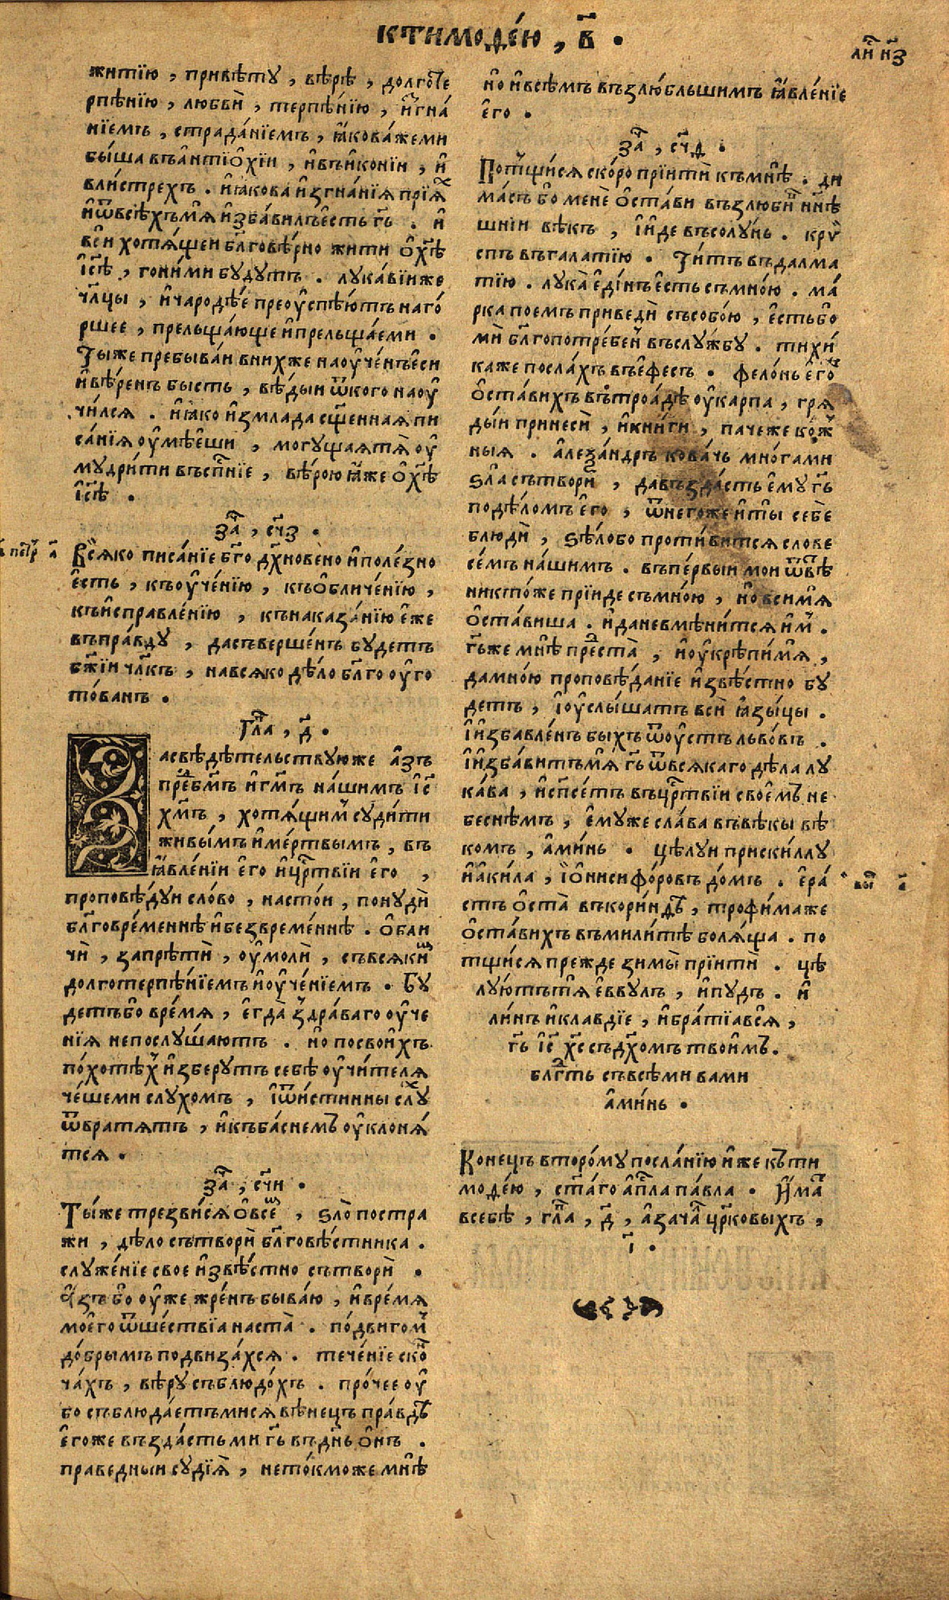 ктимоѳе́ю , в҃ .
житїю , привѣту , вѣрѣ , долготе
рпѣнїю , любвѝ , терпѣ́нїю , и҆згна́
нїемъ , страда́нїемъ , ꙗ҆кова́же ми
бы́ша въа҆нтїо҆хїи , и҆въи҆конїи , и҆
влистрехъ . и҆ꙗ҆кова и҆згна́нїѧ прїѧ́хъ
и҆ѿвсѣ́хъ мѧ и҆зба́вилъ есть г҃ь . и҆
вси хотѧ́щеи бл҃говѣ́рно жити ѻ҆хе҃ѣ
і҆с҃ѣ , гони́ми бу́дутъ . лука́вїи же
чл҃цы , и҆чародѣ́е преоуспѣ́ютъ наго́
ршее , прельща́юще и҆прельща́еми .
Ты́же пребыва́и вни́хже наоуче́нъ е҆си
и҆вѣ́ренъ бысть , вѣ́дыи ѿ кого наоу
чи́лсѧ . и҆ꙗ҆ко и҆змлада сщ҃еннаѧ пи
са́нїѧ оу҆мѣ́еши , могу́щаѧ тѧ оу҆
мудри́ти въсп҃нїе , вѣ́рою ꙗ҆́же ѻ҆хе҃ѣ
і҆с҃ѣ .
за҃ , сч҃з .
Всѧ́ко писа́нїе бг҃о дх҃новено и҆поле́зно
е҆сть , къоуче́нїю , къо҆бличе́нїю ,
къи҆справле́нїю , кънаказа́нїю е҆́же
въпра́вду , дасъверше́нъ бу́детъ
бж҃їи чл҃къ , навсѧко дѣ́ло бл҃го оу҆го
то́ванъ .
гл҃а , д҃ .
Засвѣдѣ́тельствую же а҆́зъ
пред̾ бг҃мъ и҆ г҃мъ на́шимъ і҆с҃
хм҃ъ , хотѧ́щимъ суди́ти
живы́мъ и҆ме́ртвымъ , въ
ꙗ҆вле́нїи е҆го и҆црⷭ҇твїи е҆го ,
проповѣ́дуи сло́во , насто́и , понудѝ
бл҃говре́меннѣ и҆безвре́меннѣ . ѻ҆бли
чѝ , запрѣтѝ , оу҆молѝ , совсѧ́кимъ
долготерпѣ́нїемъ и҆оуче́нїемъ . Бу́
детъ бо вре́мѧ , е҆гда̀ здра́ваго оу҆че
нїѧ непослу́шаютъ . но посвои́хъ
по́хотѣх и҆зберу́тъ себѣ оу҆чи́телѧ
че́шеми слу́хомъ , і҆ѿи́стинны слу́х
ѿвратѧ́тъ , и҆къба́снемъ оу҆клонѧ́
тсѧ .
за҃ , сч҃и .
Ты́же трезви́сѧ ѻ҆все́мъ , ѕло постра
жи , дѣ́ло сътворѝ бл҃говѣ́стника .
служе́нїе свое и҆звѣ́стно сътворѝ .
А҆́зъ бо оу҆же жре́нъ быва́ю , и҆вре́мѧ
моего ѿше́ствїа наста̀ . по́двигомъ
до́брымъ подвиза́хсѧ . тече́нїе ско́н
ча́хъ , вѣ́ру съблюдо́хъ . про́чее оу҆
бо съблюда́етъ мисѧ вѣне́цъ пра́вдꙑ
е҆го́же въздасть ми г҃ь въд҃нь ѻ҆́нъ .
пра́ведныи судїѧ̀ , нето́кможе мнѣ
но и҆всѣ́мъ възлю́бльшимъ ꙗ҆вле́нїе
е҆го .
за҃ , сч҃д .
Потщи́сѧ ско́ро прїи́тѝ къмнѣ . ди
ма́съ бо менѐ ѻ҆ста́ви възлюби́въ нн҃ѣ
шнїи вѣкъ , і҆и́де въсолу́нь . кри́
спъ въгала́тїю . Ти́тъ въдалма
тїю . лука̀ е҆ди́нъ е҆сть съмно́ю . ма́
рка поемъ приведѝ съсобо́ю , е҆сть бо
мѝ бл҃гопотре́бен въслу́жбу . тихи́
каже посла́хъ въе҆фесъ . фело́нь е҆го́же
ѻ҆ста́вихъ въ троа́дѣ оу҆карпа , грѧ
ды́и принесѝ , и҆кни́ги , па́чеже ко́ж
ныѧ . а҆леѯа́ндръ кова́чь мно́гами
ѕла сътворѝ , давъзда́сть е҆му г҃ь
подѣ́ломъ е҆го , ѿнего́же и҆ты̀ себѐ
блюдѝ , ѕѣлобо проти́витсѧ слове
се́мъ на́шимъ . въпе́рвыи мои ѿвѣ́
никто́же прїи́де съмно́ю , но вси мѧ
ѻ҆ста́виша . и҆даневмѣни́тсѧ и҆́мъ .
г҃ь же мнѣ предста̀ , и҆оу҆крѣпи́мѧ ,
дамно́ю проповѣ́данїе и҆звѣ́стно бу
детъ , і҆оу҆слы́шатъ всѝ ꙗ҆зы́цы .
І҆избавле́нъ быхъ ѿоустъ льво́въ .
І҆изба́витъ мѧ г҃ь ѿвсѧкаго дѣ́ла лу
ка́ва , и҆спⷭ҇етъ въцрⷭ҇твїи свое́мъ не
бе́снѣмъ , е҆му́же сла́ва въвѣ́ки вѣ
комъ , а҆ми́нь . цѣлу́и приски́ллу
и҆а҆ки́ла , і҆ѻ҆нисифо́ровъ до́мъ . е҆ра́
стъ ѻ҆ста̀ въкори́нѳѣ , трофи́маже
ѻ҆ста́вихъ въмили́тѣ болѧ́ща . по
тщи́сѧ пре́жде зимы̀ прїи́тѝ . цѣ
лу́ютъ тѧ е҆вву́лъ , и҆пудъ . и҆
ли́нъ и҆кла́вдїе , и҆бра́тїа всѧ ,
г҃ь і҆с҃ хс҃ съдх҃омъ твои́мъ .
блгⷣть съвсѣ́ми ва́ми
а҆ми́нь .
Коне́цъ второ́му посла́нїю и҆́же къ ти
моѳе́ю , ст҃аго а҆пⷭ҇ла па́вла . И҆́мать
всебѣ , гл҃а , д҃ , а҆зача́л црⷭ҇ковыхъ ,
і҃ .